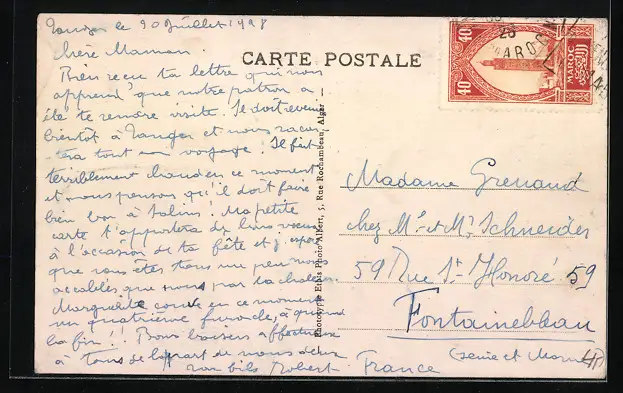 Tanger le 20 Juillet 1928
Chère Maman.
Bien reçu ta lettre qui nous
apprend que notre patron a
été te rendre visite. Il doit revenir
bientôt à Tanger et nous racon-
tera tout son voyage. Il fait
terriblement chaud en ce moment
et nous pensons qu'il doit faire
bien bon à Salins! Ma petite
carte t'apportera de bons voeux
à l'occasion de ta fête et j'espère
que vous êtes tous un peu moins
accablés que nous par la chaleur.
Marguerite couve en ce moment
un quatrième furoncle, à quand
la fin!! Bons baisers affectueux
à tous de la part de nous deux
ton fils Robert.
CARTE POSTALE
Phototypie Etabs Photo Albert, 5, Rue Rochambeau, Alger
40
40
MAROC
25
MAROC
Madame Grenaud
chez Me et Mr Schneider
59 Rue St Honoré 59
Fontainebleau
(Seine et Marne)
France